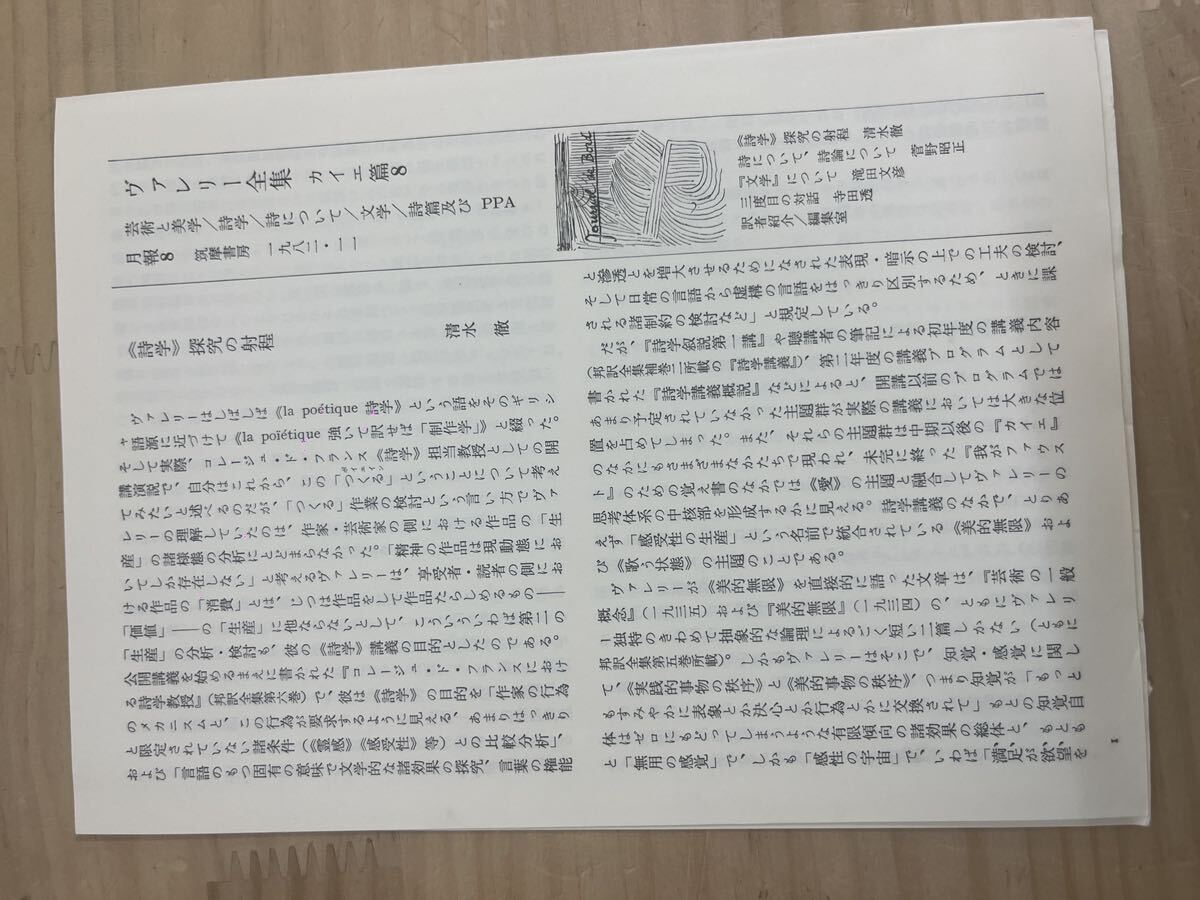 ヴァレリー全集 カイエ篇8
芸術と美学/詩学/詩について/文学/詩篇及び PPA
月報8 筑摩書房 一九八二・一一
Journal de Bord
《詩学》探究の射程 清水徹
詩について、詩論について 菅野昭正
『文学』について 滝田文彦
三度目の対話 寺田透
訳者紹介/編集室
《詩学》探究の射程
清水 徹
ヴァレリーはしばしば《la poétique 詩学》という語をそのギリシ
ャ語源に近づけて《la poïétique 強いて訳せば「制作学」》と綴った。
そして実際、コレージュ・ド・フランス《詩学》担当教授としての開
講演説で、自分はこれから、この「つくる」ということについて考え
ポイエイン
てみたいと述べるのだが、「つくる」作業の検討という言い方でヴァ
レリーの理解していたのは、作家・芸術家の側における作品の「生
産」の諸様態の分析にとどまらなかった。「精神の作品は現動態にお
いてしか存在しない」と考えるヴァレリーは、享受者・読者の側にお
ける作品の「消費」とは、じつは作品をして作品たらしめるもの――
「価値」――の「生産」に他ならないとして、こういういわば第二の
「生産」の分析・検討も、彼の《詩学》講義の目的としたのである。
公開講義を始めるまえに書かれた『コレージュ・ド・フランスにおけ
る詩学教授』(邦訳全集第六巻)で、彼は《詩学》の目的を「作家の行為
のメカニスムと、この行為が要求するように見える、あまりはっきり
と限定されていない諸条件(《霊感》《感受性》等)との比較分析」、
および「言語のもつ固有の意味で文学的な諸効果の探究、言葉の権能
と滲透とを増大させるためになされた表現・暗示の上での工夫の検討、
そして日常の言語から虚構の言語をはっきり区別するため、ときに課
される諸制約の検討など」と規定している。
だが、『詩学叙説第一講』や聴講者の筆記による初年度の講義内容
(邦訳全集補巻二所載の『詩学講義』)、第二年度の講義プログラムとして
書かれた『詩学講義概説』などによると、開講以前のプログラムでは
あまり予定されていなかった主題群が実際の講義においては大きな位
置を占めてしまった。また、それらの主題群は中期以後の『カイエ』
のなかにもさまざまなかたちで現われ、未完に終った『我がファウス
ト』のための覚え書のなかでは《愛》の主題と融合してヴァレリーの
思考体系の中核部を形成するかに見える。詩学講義のなかで、とりあ
えず「感受性の生産」という名前で統合されている《美的無限》およ
び《歌う状態》の主題のことである。
ヴァレリーが《美的無限》を直接的に語った文章は、『芸術の一般
概念』(一九三五)および『美的無限』(一九三四)の、ともにヴァレリ
ー独特のきわめて抽象的な論理によるごく短い二篇しかない(ともに
邦訳全集第五巻所載)。しかもヴァレリーはそこで、知覚・感覚に関し
て、《実践的事物の秩序》と《美的事物の秩序》、つまり知覚が「もっと
もすみやかに表象とか決心とか行為とかに交換されて」もとの知覚自
体はゼロにもどってしまうような有限傾向の諸効果の総体と、もとも
と「無用の感覚」で、しかも「感性の宇宙」で、いわば「満足が欲望を
1